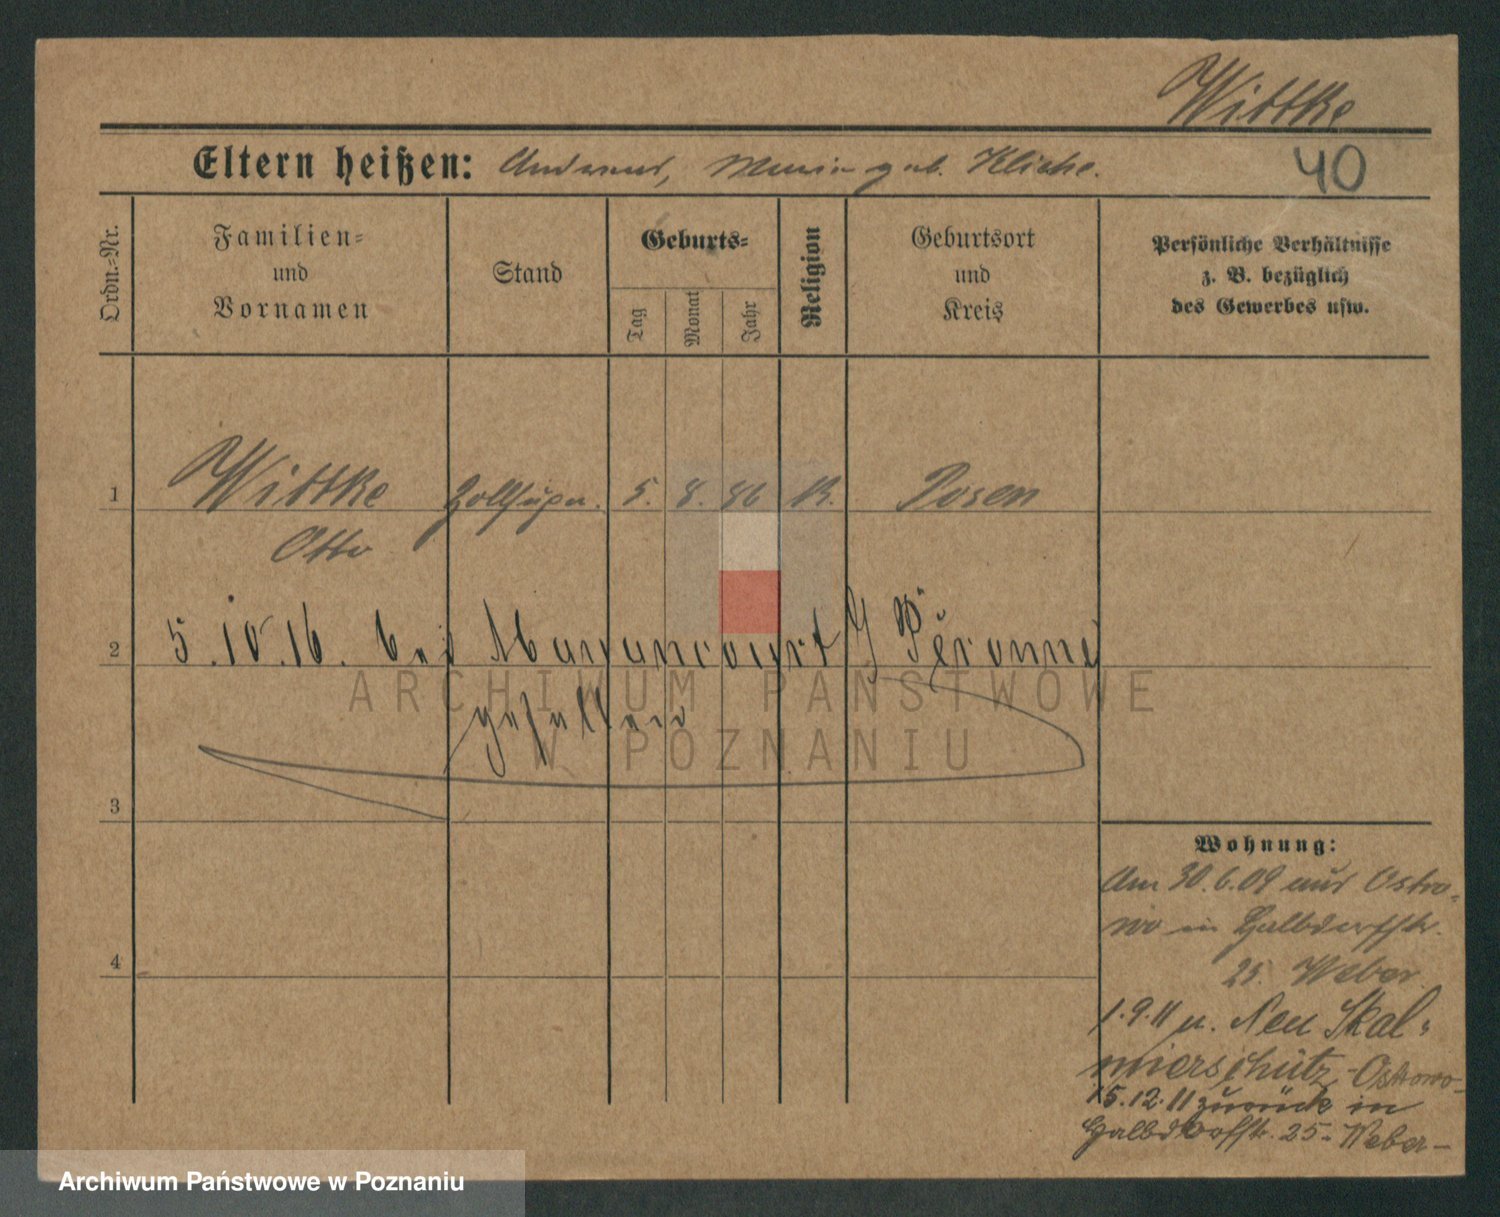 Wittke
Eltern heißen: Andreas, Maria geb. Kliche.
40
Ordn.-Nr.
Familien-
und
Vornamen
Stand
Geburts-
Tag
Monat
Jahr
Religion
Geburtsort
und
Kreis
Persönliche Verhältnisse
z. B. bezüglich
des Gewerbes usw.
1 Wittke 5. 8. 86 K. Posen
Otto
2 5.10.16. bei Péronne
gefallen
3
4
ARCHIWUM PAŃSTWOWE
W POZNANIU
Wohnung:
Am 30.6.09 aus Ostro-
wo in Halbdorfstr.
25. Weber.
1.9.11 n. Neu Skal-
mierschütz-Ostrowo-
15.12.11 zurück in
Halbdorfstr. 25- Weber-
Archiwum Państwowe w Poznaniu